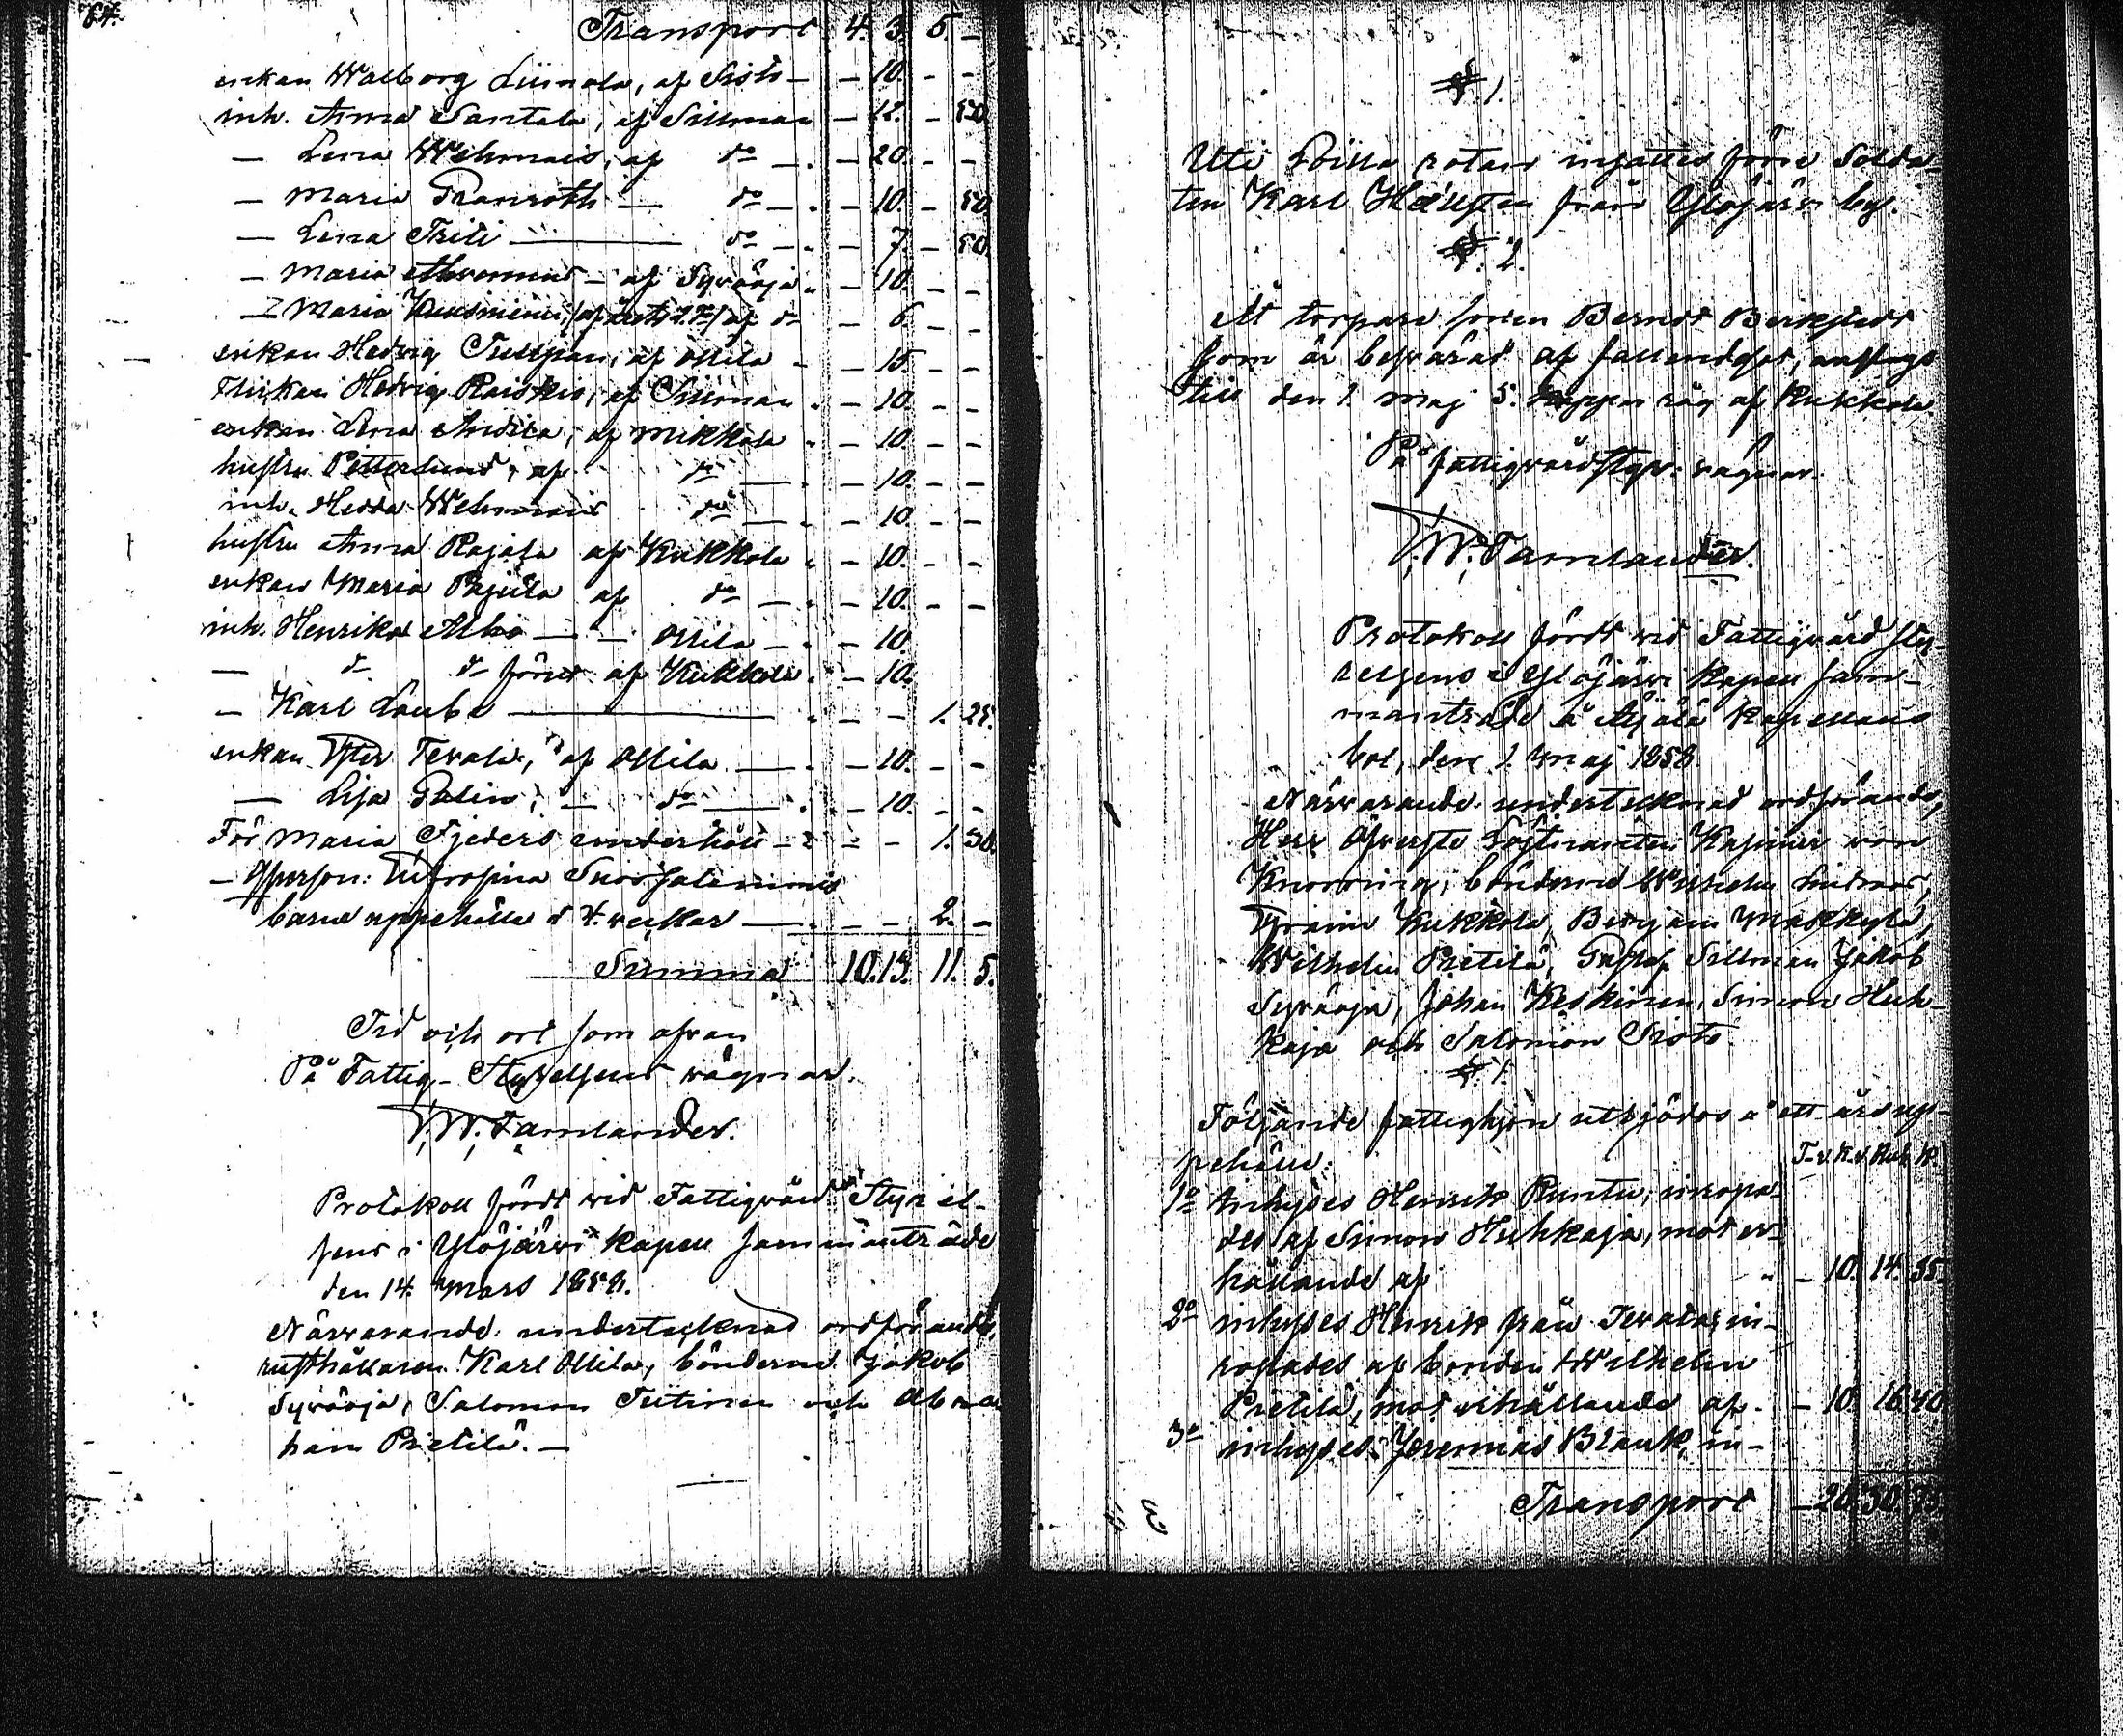 64.
Transport 4. 3. 5. -
enkan Walborg Liinala, af Sisto - - 10. - -
inh. Anna Santala, af Sillman - 12. - 50
- Lena Wehmais, af do - - 20. - -
- Maria Granroth - do - - 10. - 50
- Lena Thiti - do - - 7. - 50.
- Maria - af Syröoja - 10. - -
- Maria af do - 6. - -
enkan Hedvig Tullpan, af Ollila - 15. - -
Flickan Hedvig Raiskio, af Sillman - 10. - -
enkan Lena af Mikkola - 10. - -
hustru Petterlund, af do - 10. - -
inh. Hedda Wehmais do - 10. - -
hustru Anna Rajala af Kukkola - 10. - -
enkan Maria Pajula af do - 10. - -
inh. Henrika Alho - - Ollila - - 10
- do do förut af Kukkola - 10.
- Karl Laube - - - 1. 25.
enkan Tevala, af Ollila - - 10. - -
- Lisa Palin, - do - - 10. - -
För Maria Fjeders underhåll - - - 1. 30.
- Qperson:
barns uppehälle i 4. veckor - - - 2. -
Summa 10. 13. 11. 5.
Tid och ort som ofvan
På Fattig-Styrelsens vägnar.
W. Tamlander.
Protokoll fördt vid Fattigvårds Styrel-
sens i Ylöjärvi kapell sammanträde
den 14. Mars 1858.
Närvarande: undertecknad ordförande,
rusthållaren Karl Ollila, bönderne Jakob
Syröoja, Salomon Teitinen och Abra
ham Pietilä. -
§. 1.
Uti rotan infattes förre Solda-
ten Karl från Ylöjärvi by.
§. 2.
Åt torpare sonen Berndt
som är besvärad af fallandesot, anslogs
till den 1. Maj 5. kappar råg af Kukkola
På fattigvårdstyr: vägnar.
W. Tamlander.
Protokoll fördt vid Fattigvård sty-
relsens i Ylöjärvi kapell sam-
manträde å Äijälä kapellans
bol, den 1. Maj 1858.
Närvarande: undertecknad ordförande,
Herr Öfverste Löjtnanten Kasimir von
Knorring, bönderne Wilhelm
Kukkola, Benjam Mäkkylä,
Wilhelm Pietilä, Gustaf Sillman Jakob
Syröoja, Johan Keskinen, Simon Huh-
kaja och Salomon Sisto
§. 1.
Följande fattighjon utbjödos å ett års up-
pehälle: T-r. K-r. Rub. K.
1o Inhyses Henrik Runtu, inropa-
des af Simon Huhkaja, mot er-
hållande af - 10. 14. 35.
2o inhyses Henrik från Tevala, in-
ropades af bonden Wilhelm
Pietilä, mot erhållande af - 10. 16. 40.
3o inhyses Jeremias Blank, in-
Transport - 20. 30. 75.